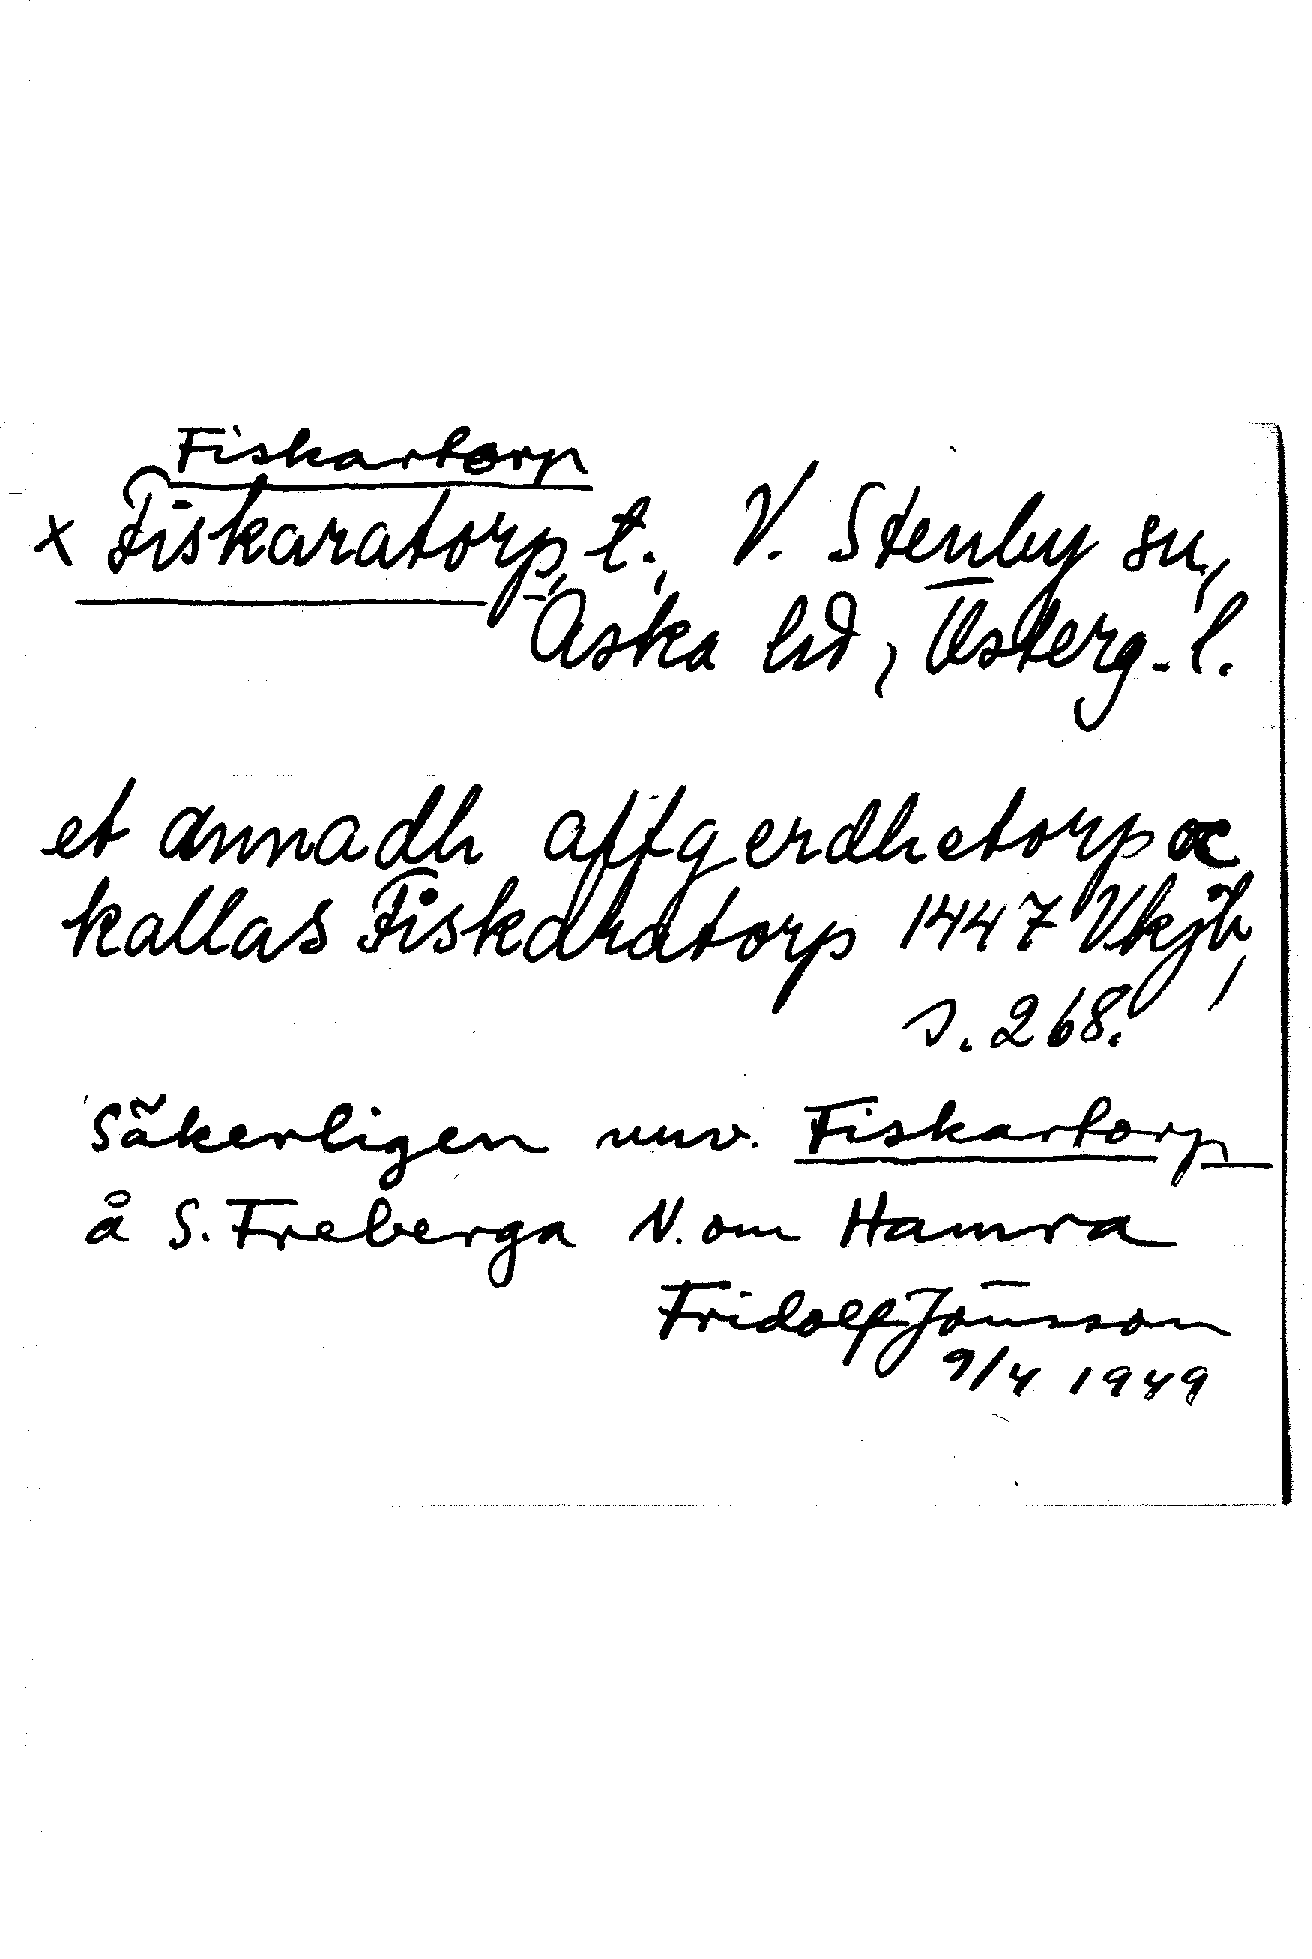 Fiskartorp
x Fiskaratorp, t., V. Stenby sn,
Aska hd, Österg. l.
et annadh affgerdhetorp oc
kallas Fiskaratorp 1447 Vkjb,
s. 268.
Säkerligen nuv. Fiskartorp
å S. Freberga N. om Hamra
Fridolf Jönsson
9/4 1949